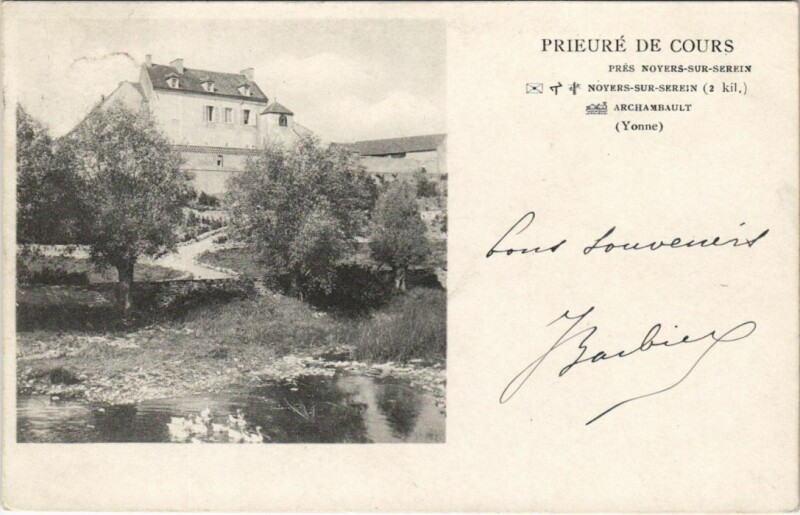 PRIEURÉ DE COURS
PRÈS NOYERS-SUR-SEREIN
NOYERS-SUR-SEREIN (2 kil.)
ARCHAMBAULT
(Yonne)
bons souvenirs
Barbier